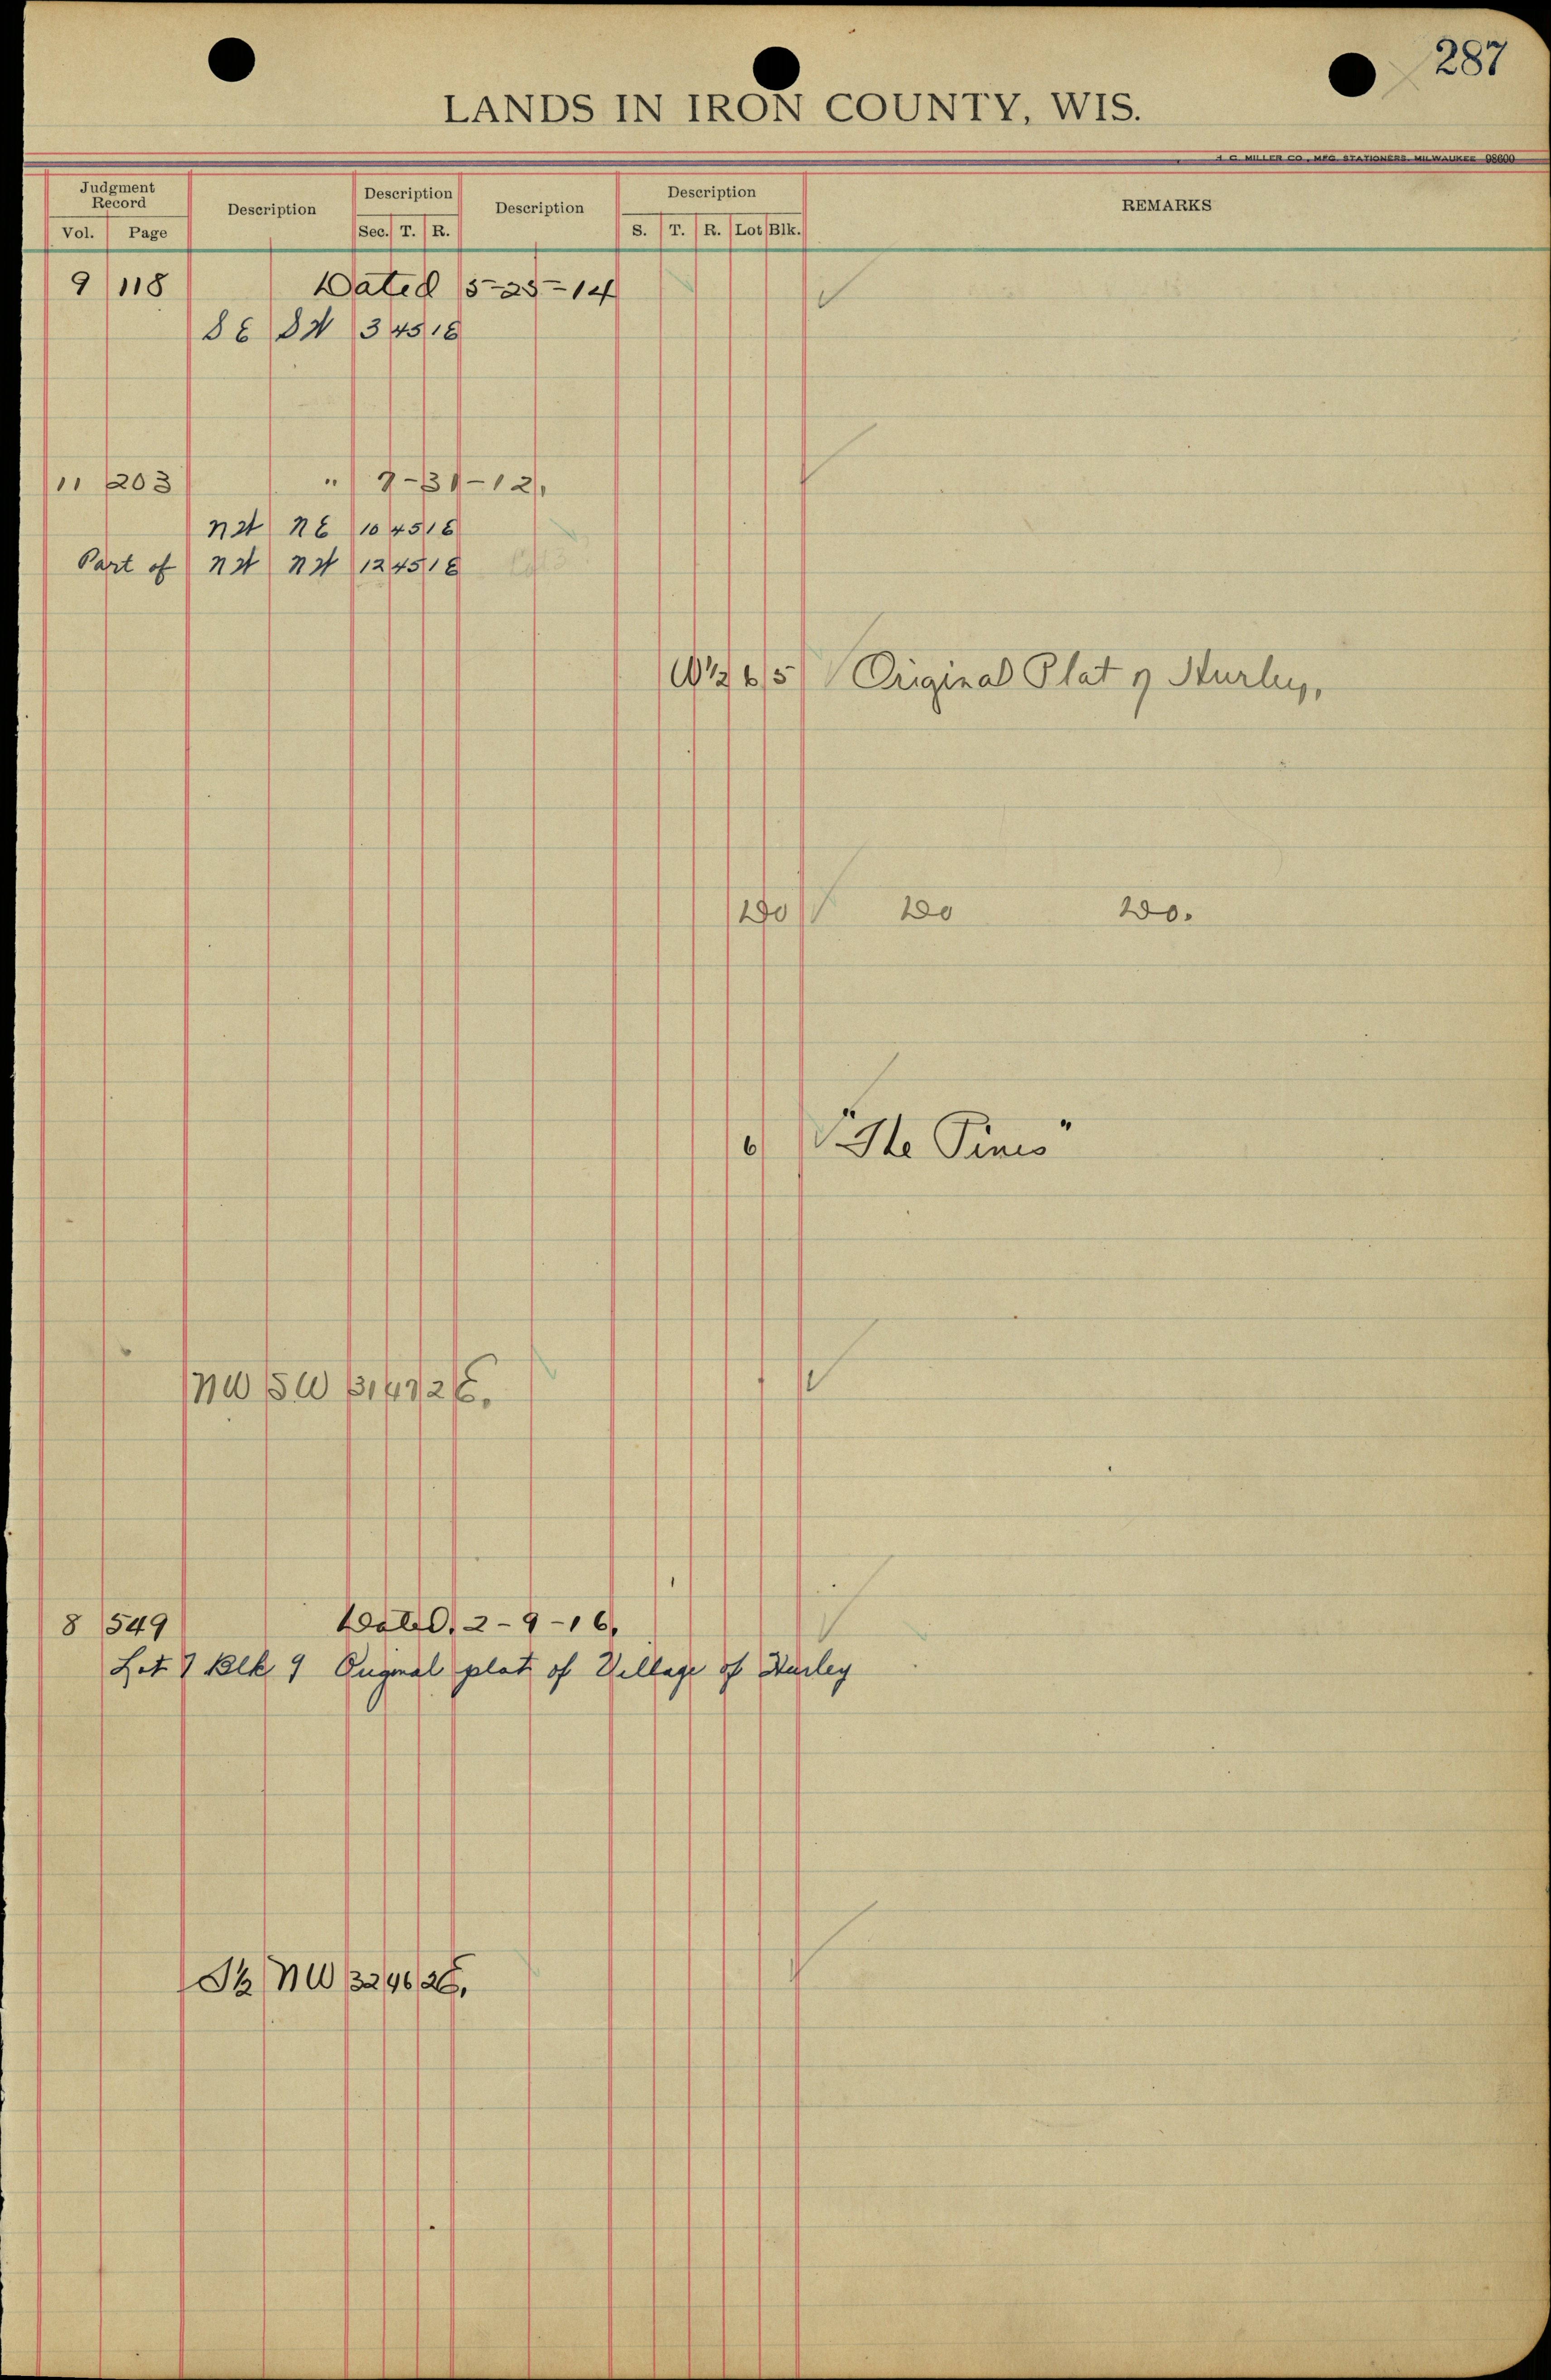 287
LANDS IN IRON COUNTY, WIS.
H. C. MILLER CO., MFG. STATIONERS, MILWAUKEE 98600
Judgment Record Description Description Description Description REMARKS
Vol. Page Sec. T. R. S. T. R. Lot Blk.
9 118 Dated 5-25-14
SE SW 3 45 1E
11 203 " 7-31-12,
NW NE 10 45 1E
Part of NW NW 12 45 1E
W½ 6 5 Original Plat of Hurley,
Do Do Do.
6 "The Pines"
NW SW 31 47 2E.
8 549 Dated, 2-9-16,
Lot 7 Blk 9 Original plat of Village of Hurley
S½ NW 32 46 2E,